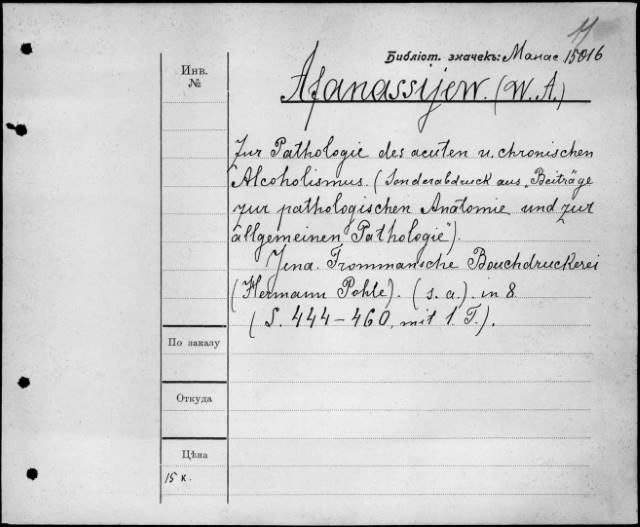 11
Библіот. значекъ: Манас 15816
Инв.
№
Afanassijew. (W. A.)
Zur Pathologie des acuten u. chronischen
Alcoholismus. (Sonderabdruck aus „Beiträge
zur pathologischen Anatomie und zur
allgemeinen Pathologie").
Jena. Frommansche Bouchdruckerei
(Hermann Pohle). (s. a.). in 8
(S. 444-460, mit 1 T.).
По заказу
Откуда
Цѣна
15 к.